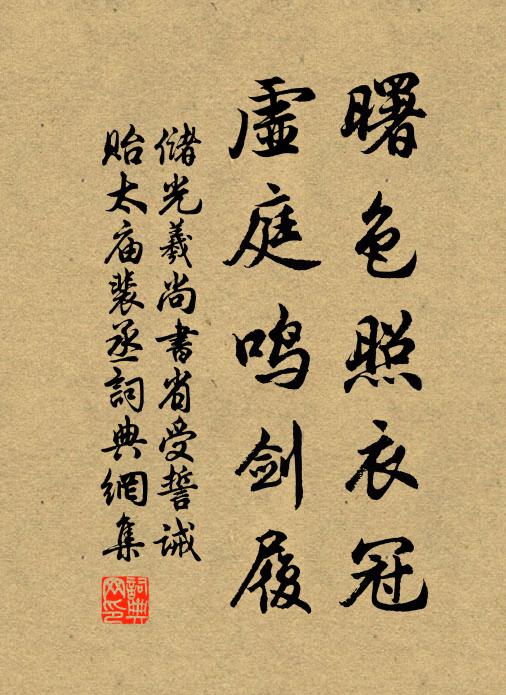 曙色照衣冠
虚庭鸣剑履
储光羲尚書省受誓诫
贻太庙裴丞詞典網集
詞典网印